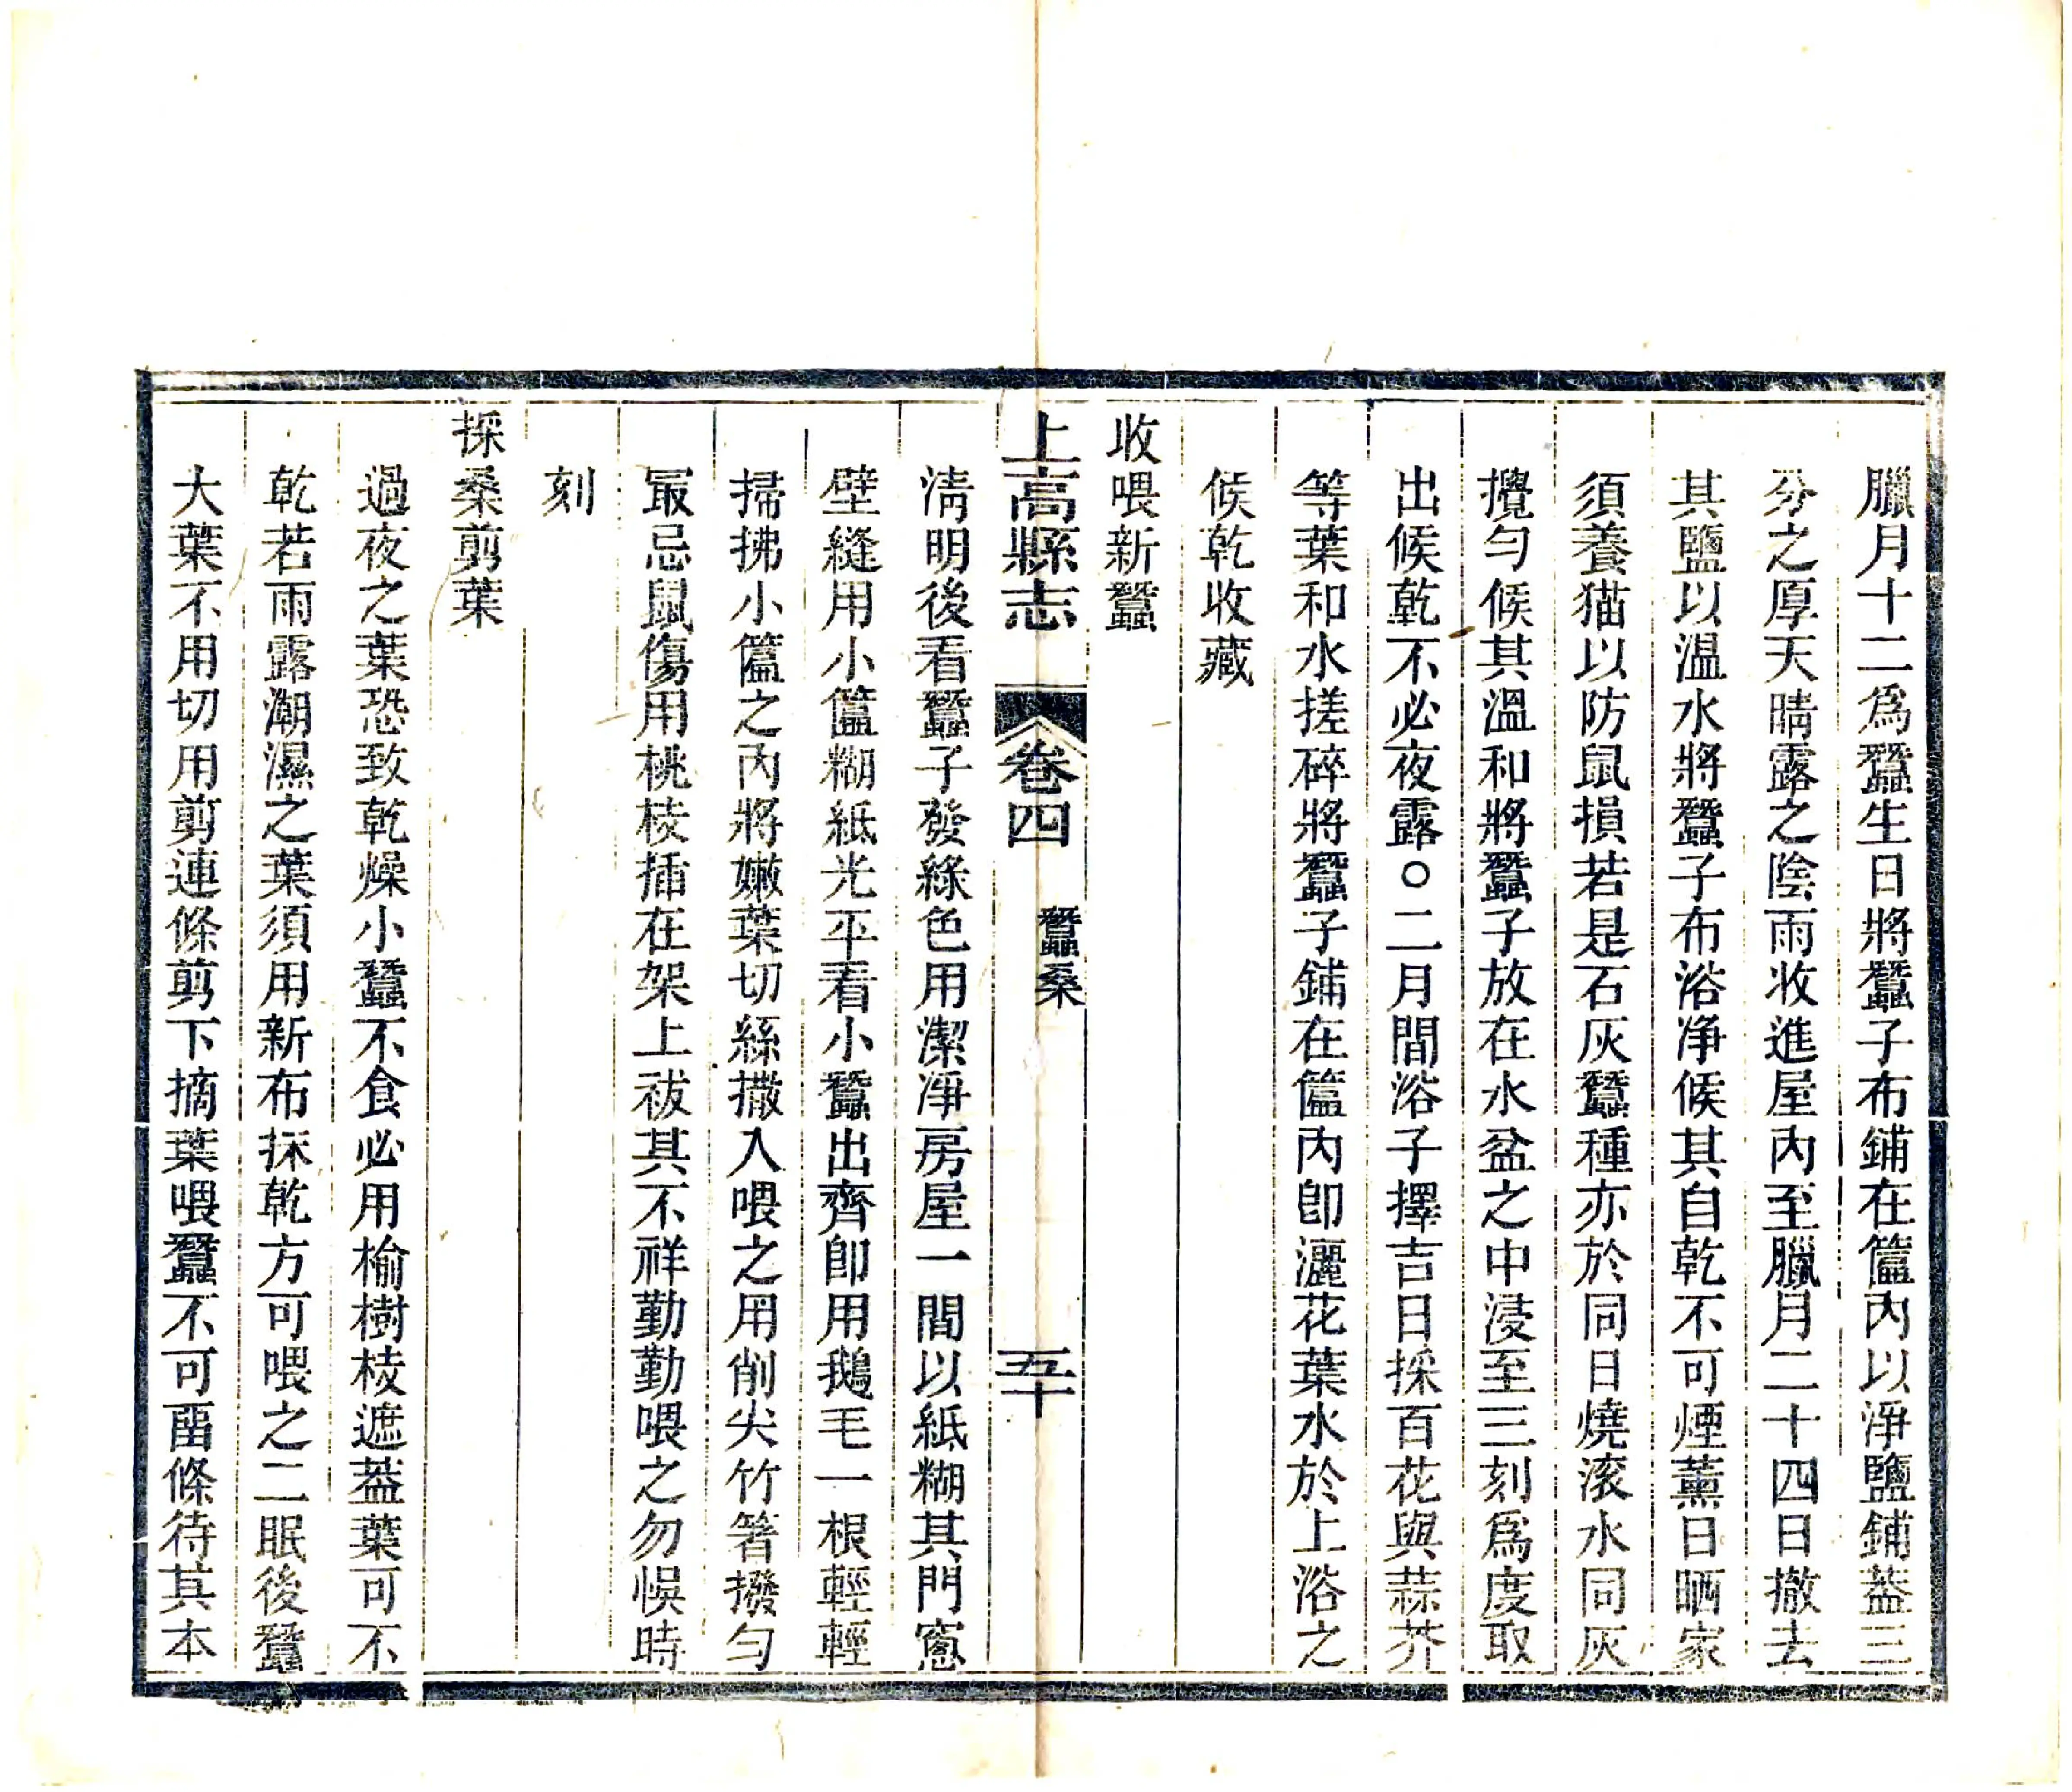 臘月十二爲蠶生日將蠶子布鋪在簹內以淨鹽鋪葢三
分之厚天晴露之陰雨收進屋內至臘月二十四日撤去
其鹽以溫水將蠶子布浴净候其自乾不可煙薰日晒家
須養猫以防鼠損若是石灰蠶種亦於同日燒滚水同灰
攪勻候其溫和將蠶子放在水盆之中浸至三刻爲度取
出候乾不必夜露○二月間浴子擇吉日採百花與蒜芥
等葉和水搓碎將蠶子鋪在簹內卽灑花葉水於上浴之
候乾收藏
收喂新蠶
上高縣志 卷四 蠶桑 五十
淸明後看蠶子發綠色用潔凈房屋一間以紙糊其門窻
壁縫用小簹糊紙光平看小蠶出齊卽用鵝毛一根輕輕
掃拂小簹之內將嫩葉切絲撒入喂之用削尖竹箸撥勻
最忌鼠傷用桃枝插在架上祓其不祥勤勤喂之勿悞時
刻
採桑剪葉
過夜之葉恐致乾燥小蠶不食必用榆樹枝遮葢葉可不
乾若雨露潮濕之葉須用新布抹乾方可喂之二眠後蠶
大葉不用切用剪連條剪下摘葉喂蠶不可畱條待其本